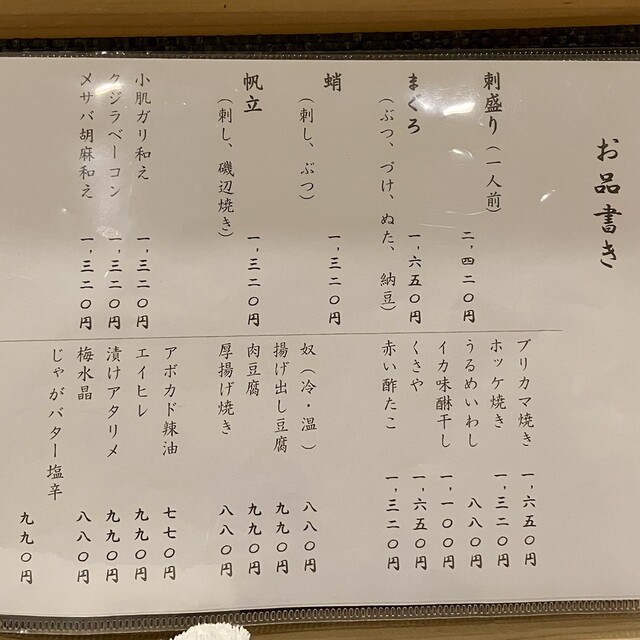 お品書き
刺盛り（一人前）
二，四二〇円
まぐろ
一，六五〇円
（ぶつ、づけ、ぬた、納豆）
蛸
一，三二〇円
（刺し、ぶつ）
帆立
一，三二〇円
（刺し、磯辺焼き）
小肌ガリ和え 一，三二〇円
クジラベーコン 一，三二〇円
メサバ胡麻和え 一，三二〇円
ブリカマ焼き 一，六五〇円
ホッケ焼き 一，三二〇円
うるめいわし 八八〇円
イカ味醂干し 一，一〇〇円
くさや 一，六五〇円
赤い酢たこ 一，三二〇円
奴（冷・温） 八八〇円
揚げ出し豆腐 九九〇円
肉豆腐 九九〇円
厚揚げ焼き 八八〇円
アボカド辣油 七七〇円
エイヒレ 九九〇円
漬けアタリメ 九九〇円
梅水晶 八八〇円
じゃがバター塩辛
九九〇円